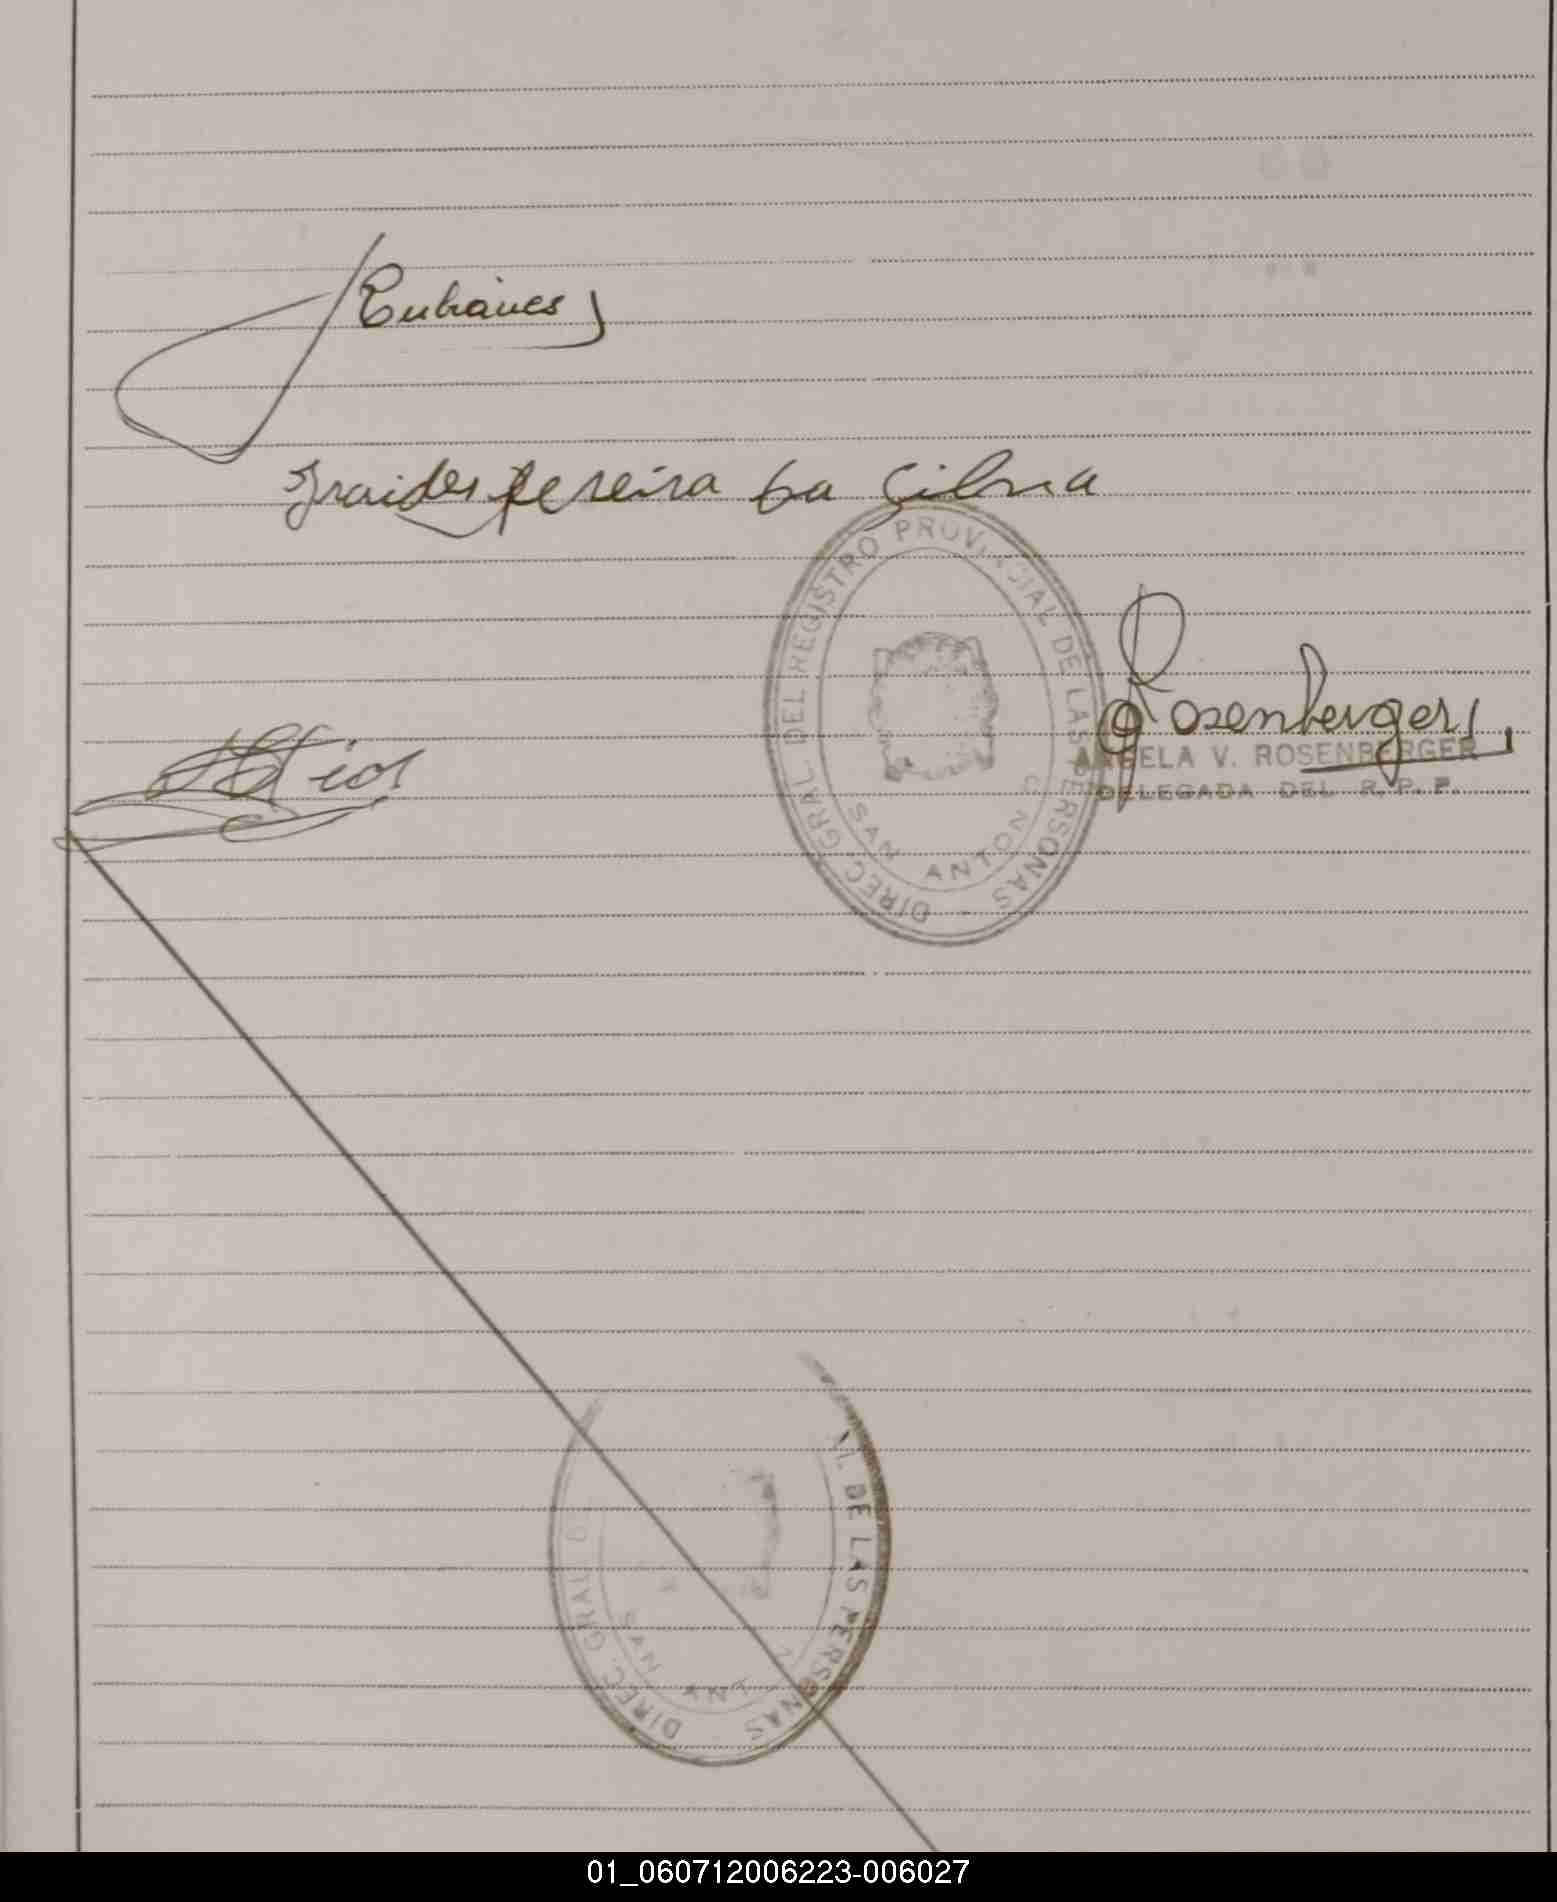 Iraides Pereira da Silva
DIREC. GRAL. DEL REGISTRO PROVINCIAL DE LAS PERSONAS
SAN ANTONIO
Rosenberger
ANGELA V. ROSENBERGER
DELEGADA DEL R. P. P.
DIREC. GRAL. D
L. DE LAS PERSONAS
SAN ANT
01_060712006223-006027